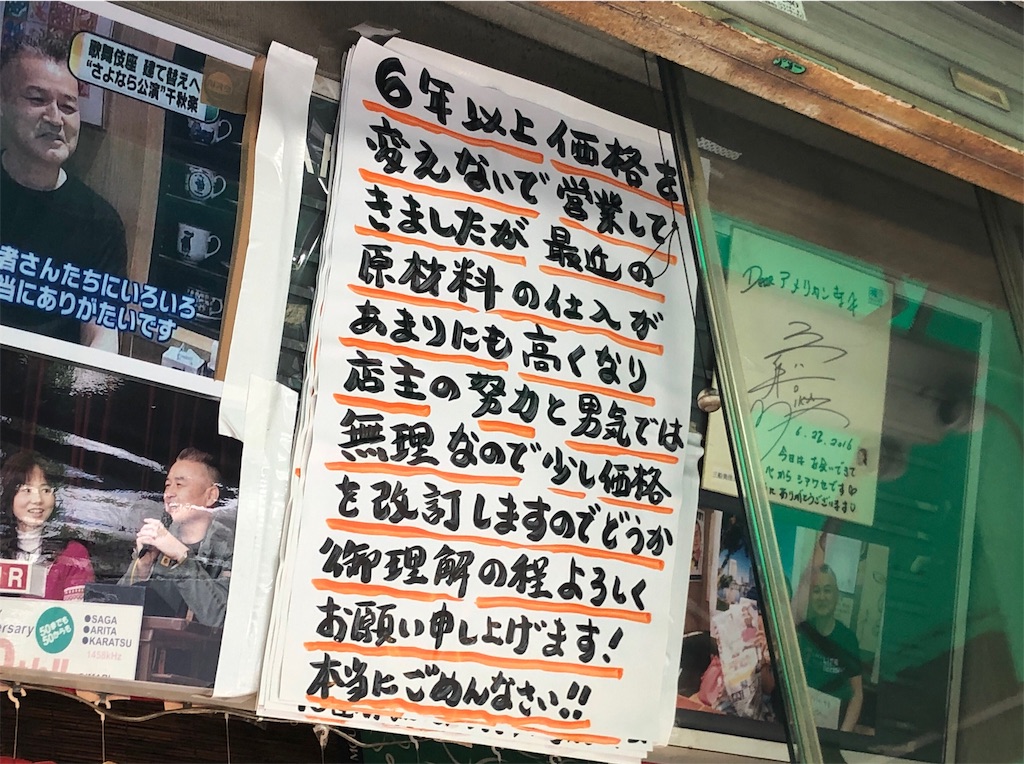 歌舞伎座 建て替えへ
“さよなら公演”千秋楽
者さんたちにいろいろ
当にありがたいです
6年以上価格を
変えないで営業して
きましたが最近の
原材料の仕入が
あまりにも高くなり
店主の努力と男気では
無理なので少し価格
を改訂しますのでどうか
御理解の程よろしく
お願い申し上げます!
本当にごめんなさい!!
Dear アメリカン
6.22.2016
今日は お会いできて
シアワセです
ありがとうございます
50までも
50からも
●SAGA
●ARITA
●KARATSU
1458kHz